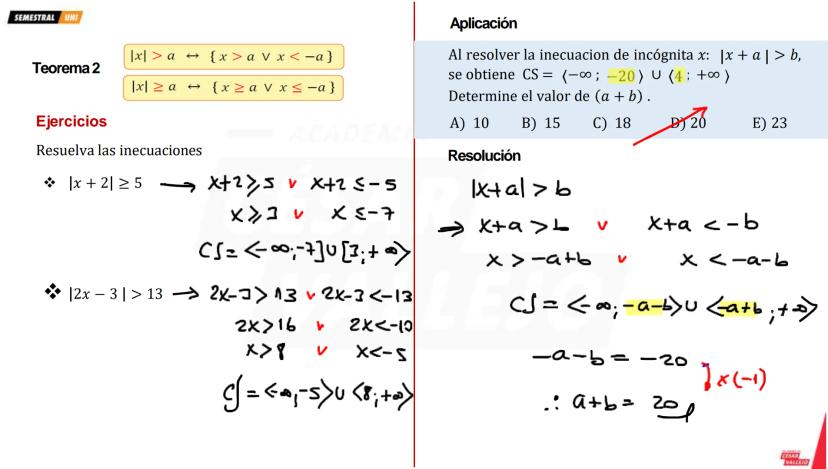 SEMESTRAL UNI
Teorema 2
|x| > a ↔ { x > a ∨ x < −a }
|x| ≥ a ↔ { x ≥ a ∨ x ≤ −a }
Ejercicios
Resuelva las inecuaciones
❖ |x + 2| ≥ 5 → x+2 ≥ 5 ∨ x+2 ≤ −5
x ≥ 3 ∨ x ≤ −7
CS = <−∞; −7] ∪ [3; +∞>
❖ |2x − 3| > 13 → 2x−3 > 13 ∨ 2x−3 < −13
2x > 16 ∨ 2x < −10
x > 8 ∨ x < −5
CS = <−∞, −5> ∪ <8; +∞>
Aplicación
Al resolver la inecuacion de incógnita x: |x + a | > b,
se obtiene CS = ⟨−∞ ; −20 ⟩ ∪ ⟨4 ; +∞ ⟩
Determine el valor de (a + b) .
A) 10 B) 15 C) 18 D) 20 E) 23
Resolución
|x+a| > b
→ x+a > b ∨ x+a < −b
x > −a+b ∨ x < −a−b
CS = <−∞; −a−b> ∪ <−a+b ; +∞>
−a−b = −20
x(−1)
∴ a+b = 20
ACADEMIA
CÉSAR
VALLEJO
ACADEMIA
CÉSAR
VALLEJO